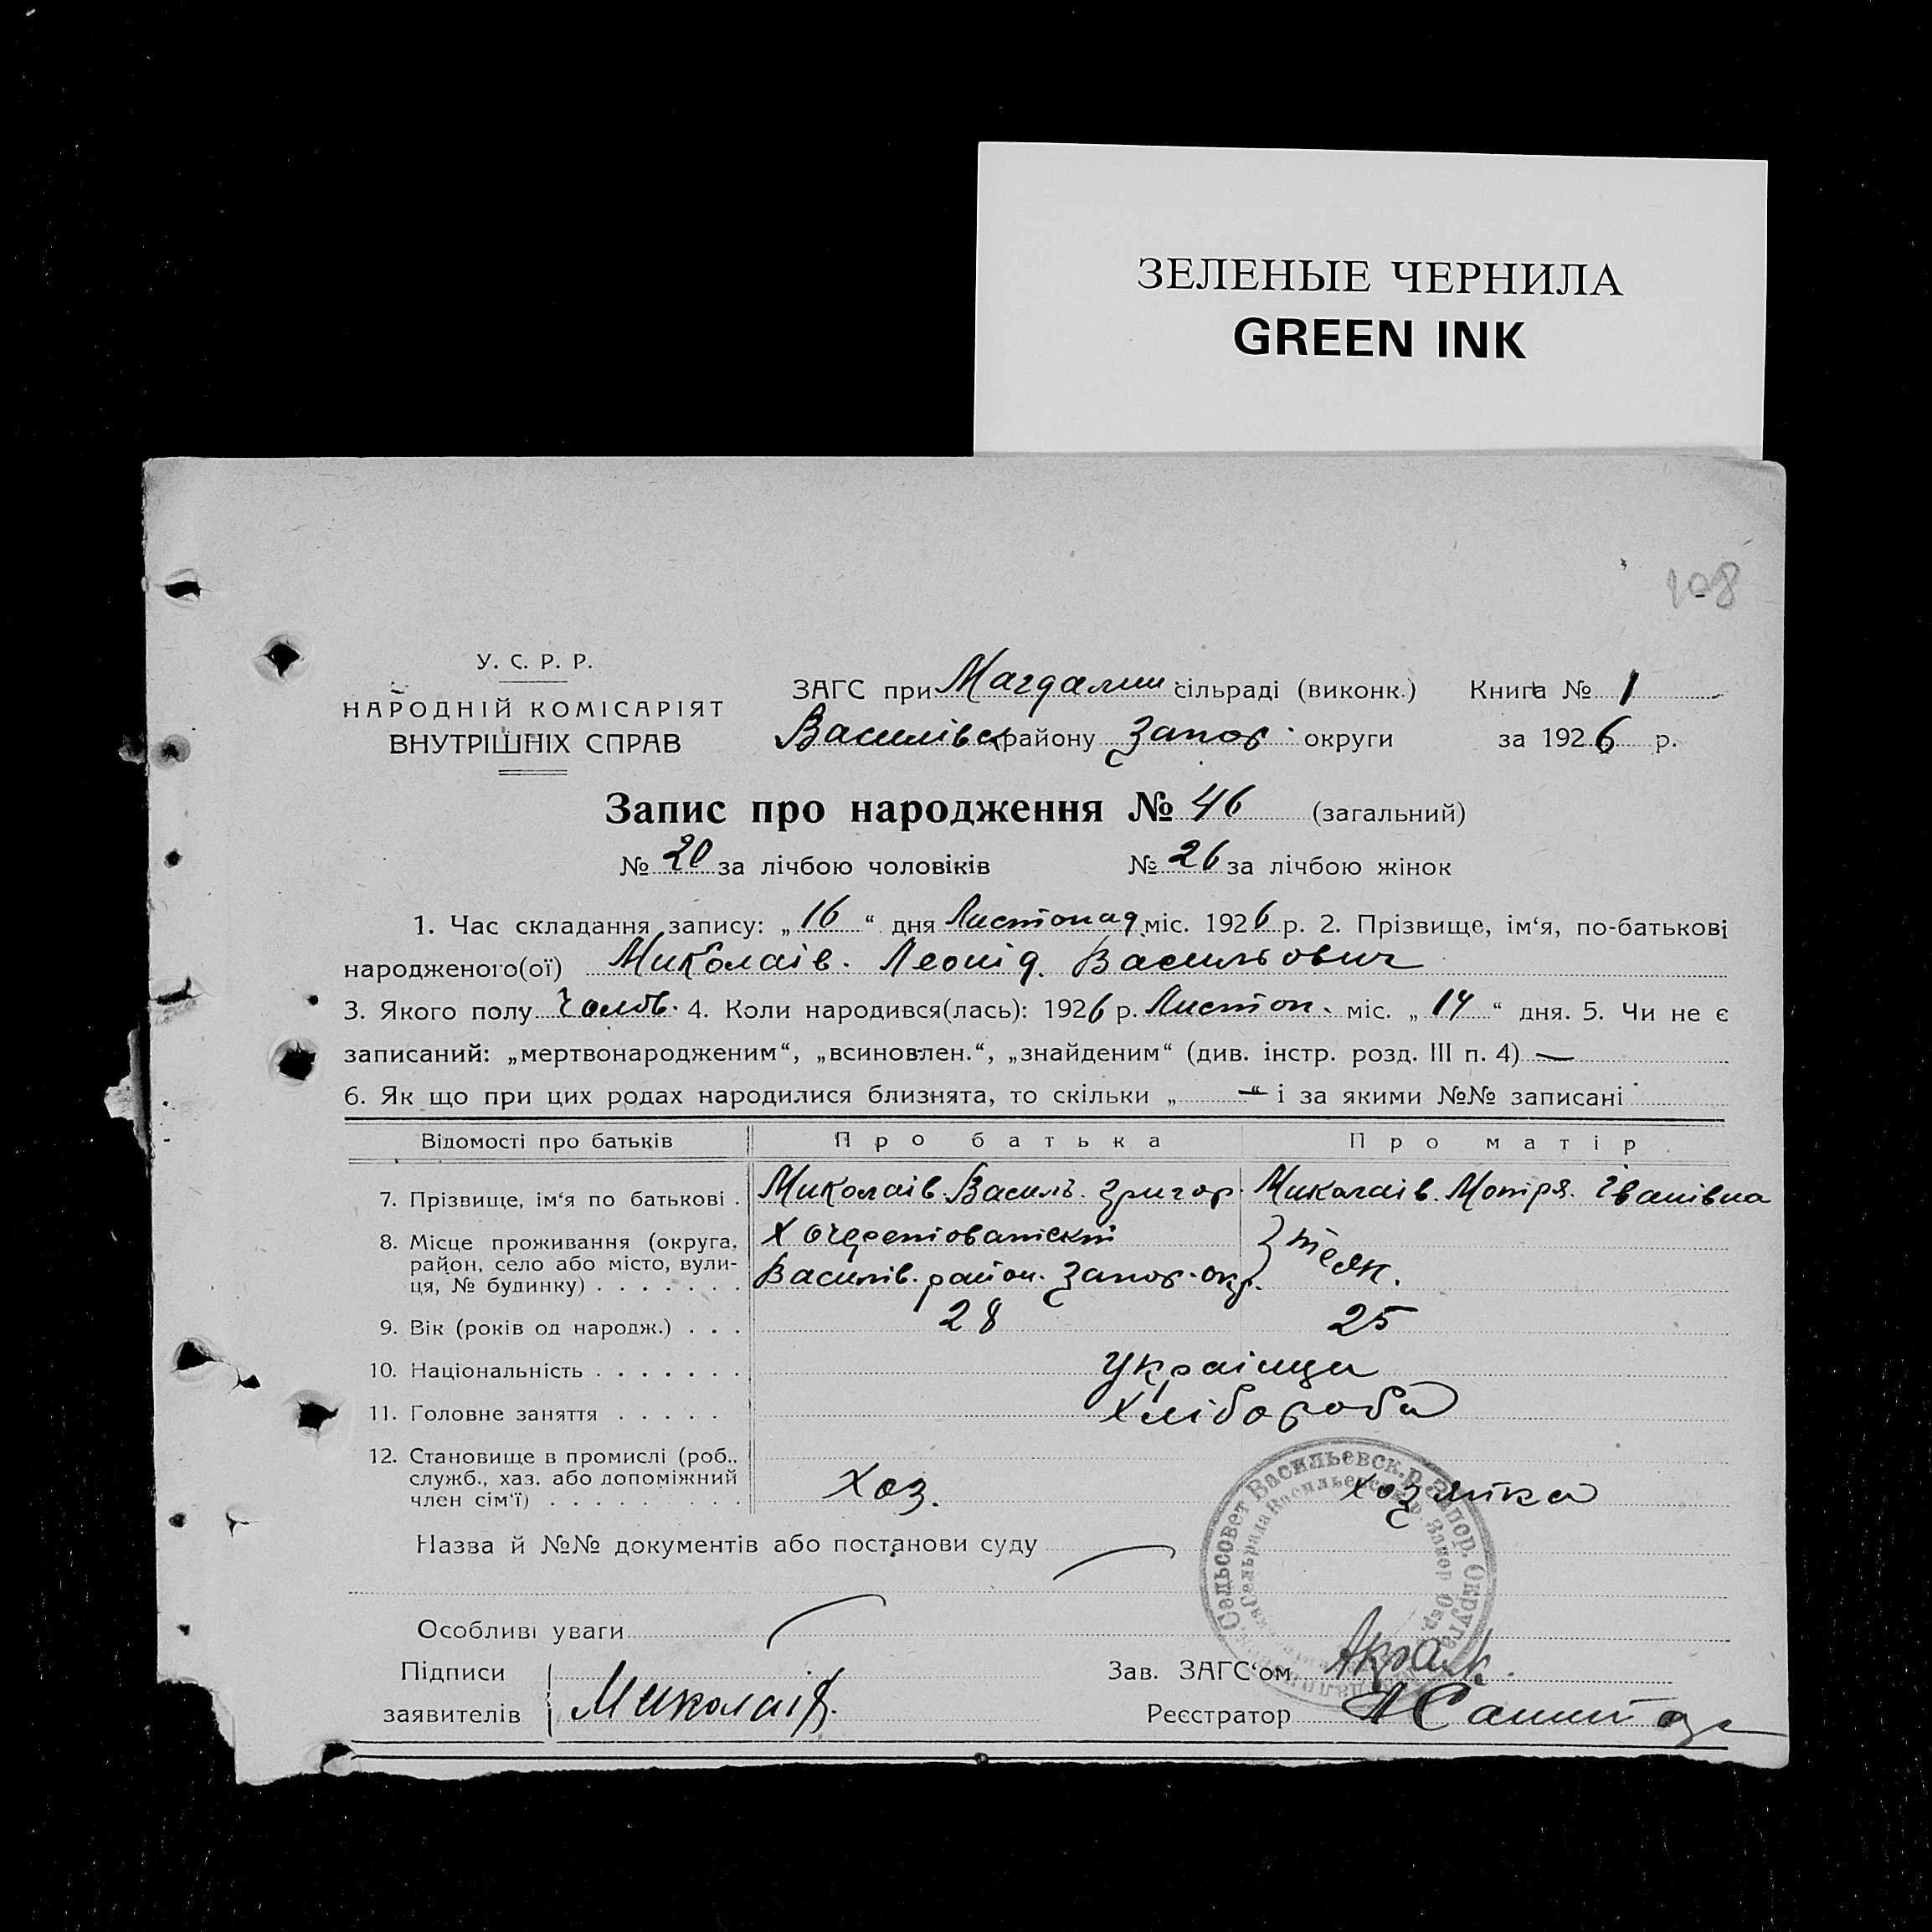 ЗЕЛЕНЫЕ ЧЕРНИЛА
GREEN INK
108
У. С. Р. Р.
НАРОДНІЙ КОМІСАРІЯТ
ВНУТРІШНІХ СПРАВ
ЗАГС при Магдалин сільраді (виконк.) Книга № 1
Василівск району Запор. округи за 1926 р.
Запис про народження № 46 (загальний)
№ 20 за лічбою чоловіків № 26 за лічбою жінок
1. Час складання запису: „16“ дня Листопад міс. 1926 р. 2. Прізвище, ім‘я, по-батькові
народженого(ої) Миколаів. Леонід. Васильович
3. Якого полу Чолов. 4. Коли народився(лась): 1926 р. Листоп. міс. „14“ дня. 5. Чи не є
записаний: „мертвонародженим“, „всиновлен.“, „знайденим“ (див. інстр. розд. III п. 4) —
6. Як що при цих родах народилися близнята, то скільки „ —“ і за якими №№ записані
Відомості про батьків Про батька Про матір
7. Прізвище, ім‘я по батькові . Миколаів. Василь. Григор. Миколаів. Мотря. Іванівна
8. Місце проживання (округа, Х
район, село або місто, вули-
ця, № будинку) . . . . . . . Василів. район. Запор. окр.
9. Вік (років од народж.) . . . 28 25
10. Національність . . . . . . . Українци
11. Головне заняття . . . . . Хлібороби
12. Становище в промислі (роб.,
служб., хаз. або допоміжний
член сім‘ї) . . . . . . . . . Хоз. Хозяйка
Сельсовет Васильевск. р. Запор. Округа
Сельрада Васильевск. р. Запор Окр.
Назва й №№ документів або постанови суду
Особливі уваги
Підписи
заявителів Миколаів.
Зав. ЗАГС‘ом
Реєстратор